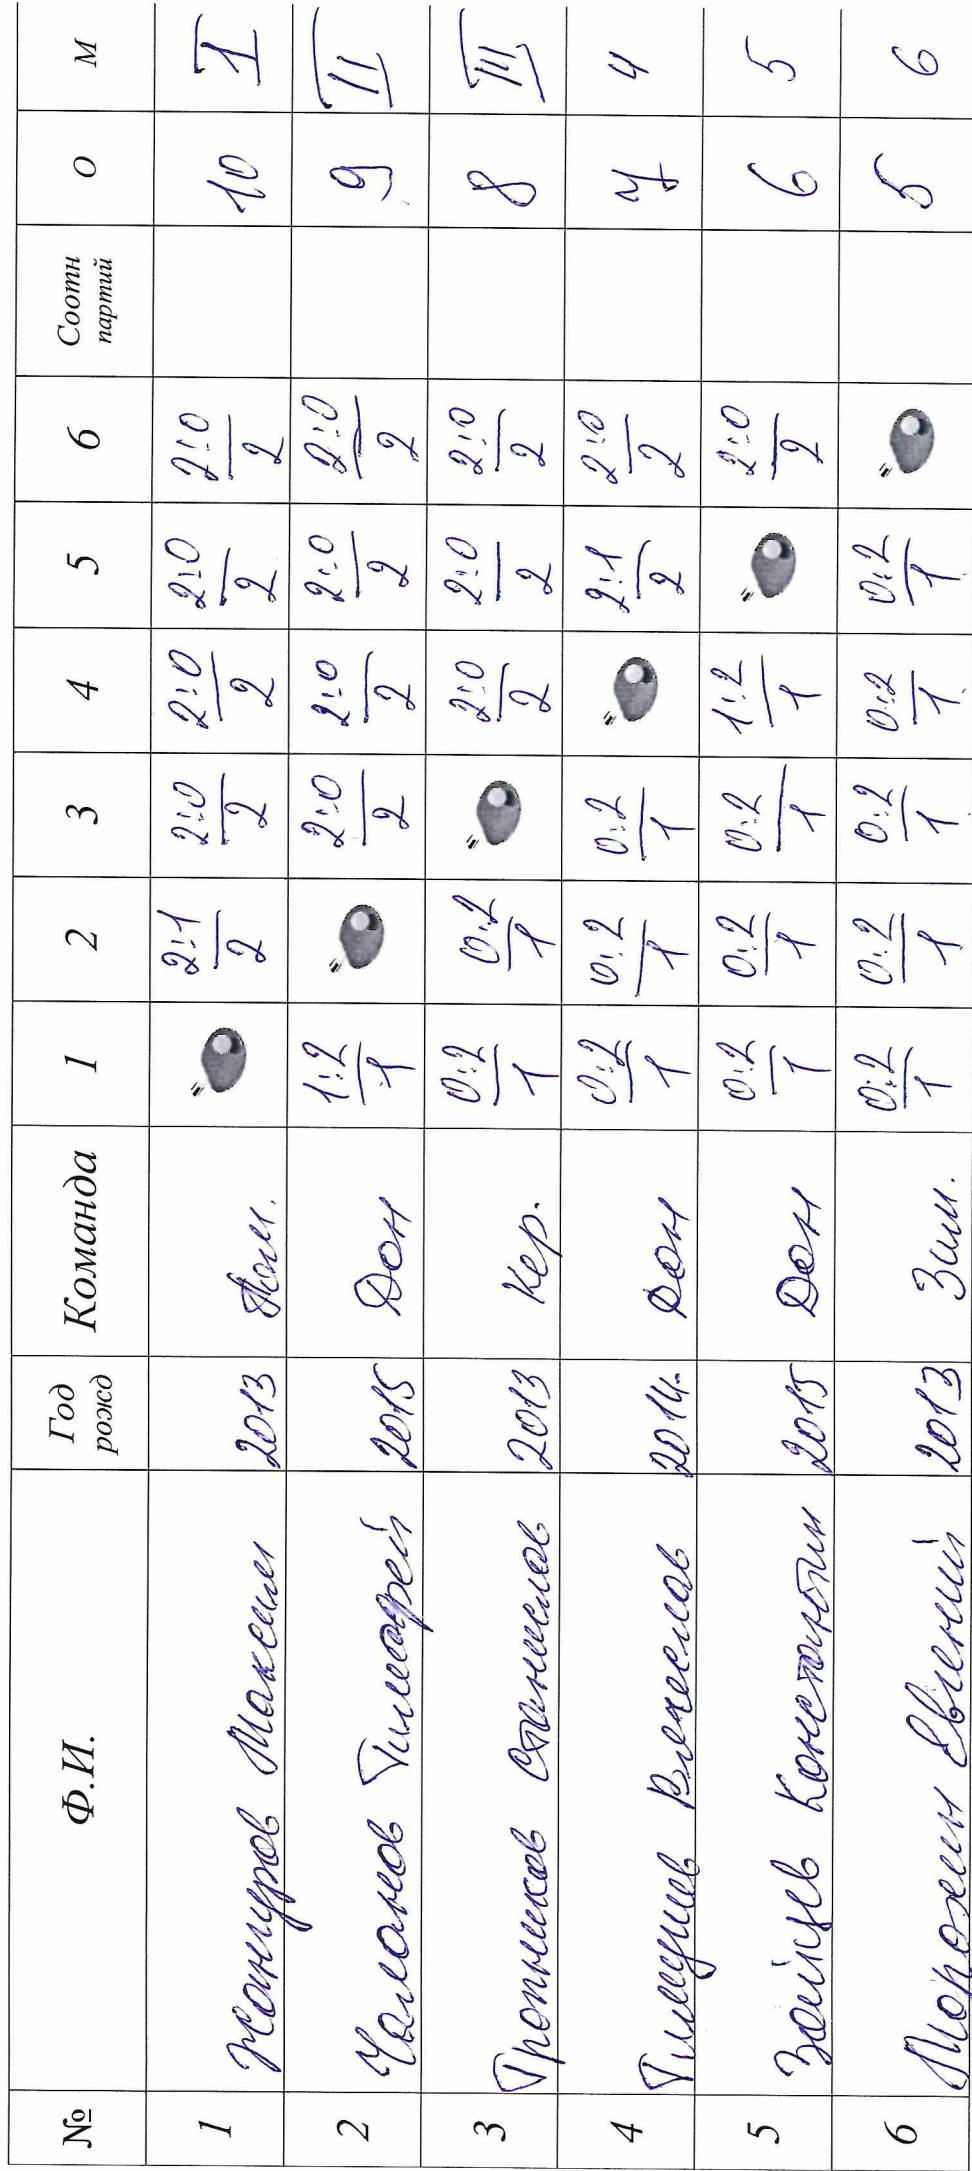 № Ф.И. Год рожд Команда 1 2 3 4 5 6 Соотн партий О М
1 Жанчуров Максим 2013 2:1/2 2:0/2 2:0/2 2:0/2 2:0/2 10 I
2 Чаланов Тимофей 2015 Дон 1:2/1 2:0/2 2:0/2 2:0/2 2:0/2 9 II
3 Тропников Станислав 2013 Кер. 0:2/1 0:2/1 2:0/2 2:0/2 2:0/2 8 III
4 Тимушев Вячеслав 2014 Дон 0:2/1 0:2/1 0:2/1 2:1/2 2:0/2 7 4
5 Зайцев Константин 2015 Дон 0:2/1 0:2/1 0:2/1 1:2/1 2:0/2 6 5
6 Морохин Евгений 2013 Зим. 0:2/1 0:2/1 0:2/1 0:2/1 0:2/1 5 6